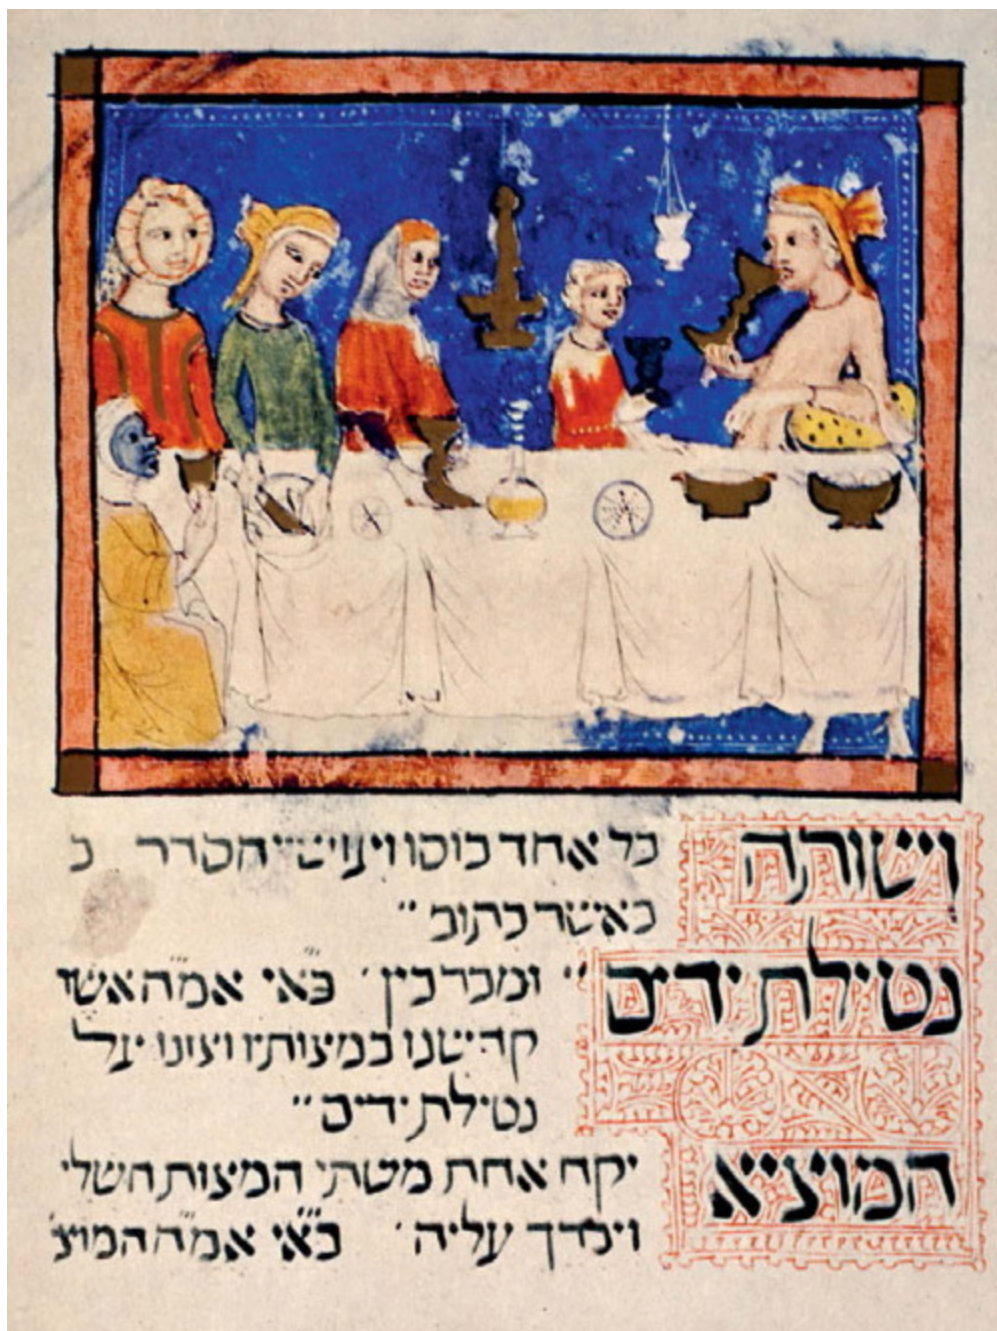 וישותה כל אחד כוסו הסדר כ
כאשר כתוב ״
נטילת ידים ״ ומברכין ׳ באי אמה
קדשנו במצותיו וצונו על
נטילת ידים ״
המוציא יקח אחת משתי המצות השלי
ויברך עליה ׳ באי אמה המוצ